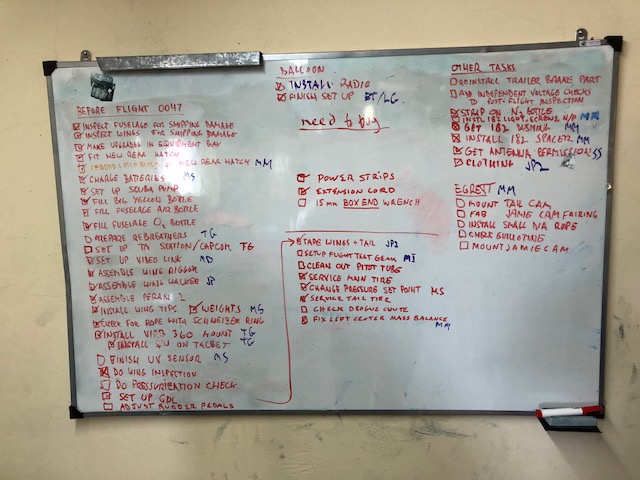 BEFORE FLIGHT 0047
INSPECT FUSELAGE FOR SHIPPING DAMAGE
INSPECT WINGS FOR SHIPPING DAMAGE
MAKE UPGRADES IN EQUIPMENT BAY
FIT NEW REAR HATCH
NEW REAR HATCH MM
CHARGE BATTERIES MS
SET UP SCUBA PUMP
FILL BIG YELLOW BOTTLE
FILL FUSELAGE AIR BOTTLE
FILL FUSELAGE O2 BOTTLE
PREPARE REBREATHERS TG
SET UP STATION/CAPCOM TG
SET UP VIDEO LINK
ASSEMBLE WING RIGGER
ASSEMBLE WING WALKER JP
ASSEMBLE PERLAN 2
INSTALL WING TIPS WEIGHTS MS
CHECK FOR ROPE WITH SCHWEIZER RING
INSTALL VIRB 360 MOUNT TG
INSTALL ON TALBET TG
FINISH UV SENSOR MS
DO WING INSPECTION
DO PRESSURIZATION CHECK
SET UP GDL
ADJUST RUDDER PEDALS
BALLOON
INSTALL RADIO
FINISH SET UP ET/LG
need to buy
POWER STRIPS
EXTENSION CORD
15 mm BOX END WRENCH
TAPE WINGS + TAIL JP2
SETUP FLIGHT TEST GEAR MI
CLEAN OUT PITOT TUBE
SERVICE MAIN TIRE
CHANGE PRESSURE SET POINT MS
SERVICE TAIL TIRE
CHECK DROGUE CHUTE
FIX LEFT CENTER MASS BALANCE
MM
OTHER TASKS
REINSTALL TRAILER BRAKE PART
ADD INDEPENDENT VOLTAGE CHECKS
TO POST-FLIGHT INSPECTION
STRAP ON N2 BOTTLE
INSTL 182 LIGHT, SCREWS, N/P
GET 182 MM
INSTALL 182 SPACER MM
GET ANTENNA PERMISSION SS
CLOTHING JP2
EGRETT MM
MOUNT TAIL CAM
FAB JAMIE CAM FAIRING
INSTALL SMALL DIA ROPE
CHECK GUILLOTINE
MOUNT JAMIE CAM